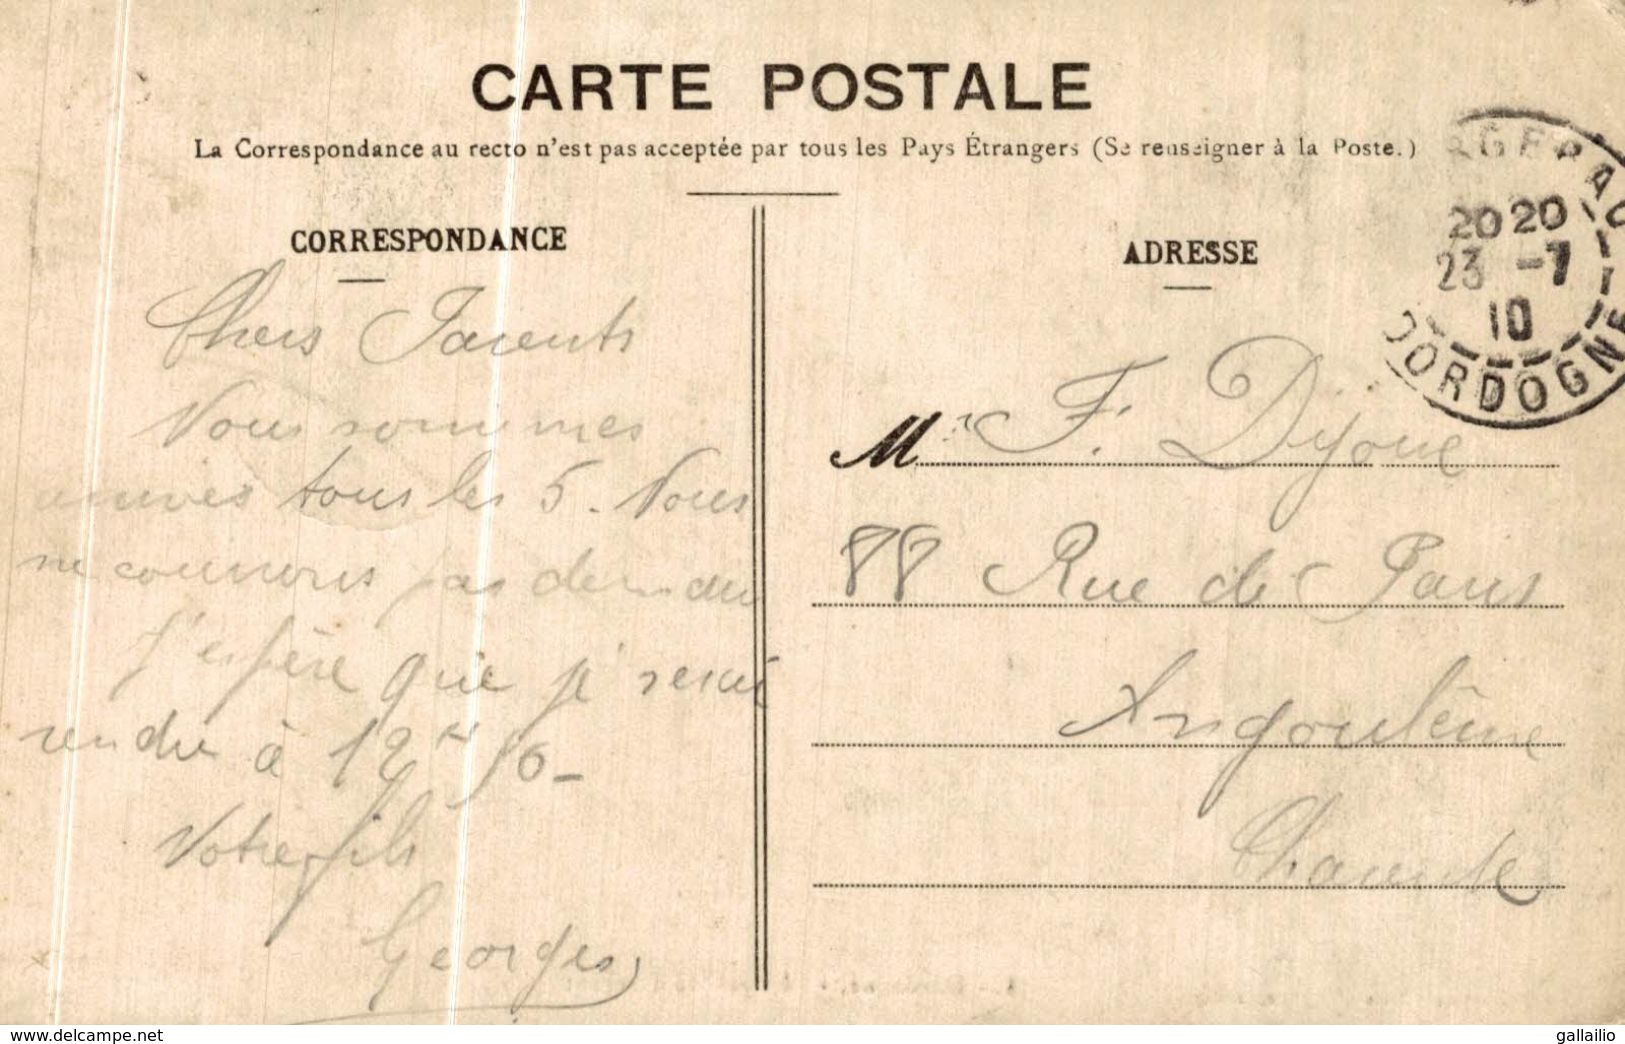 CARTE POSTALE
La Correspondance au recto n'est pas acceptée par tous les Pays Étrangers (Se renseigner à la Poste.)
CORRESPONDANCE
Chers Parents
Nous sommes
arrivés tous les 5. Nous
ne courrons pas demain
J'espère que j' serai
rendu à 12 h 50 -
Votre fils
Georges
ADRESSE
Mr F. Dijoue
88 Rue de Paris
Angoulême
Charente
RGERAC
20 20
23 -7
10
DORDOGNE
www.delcampe.net
gallailio